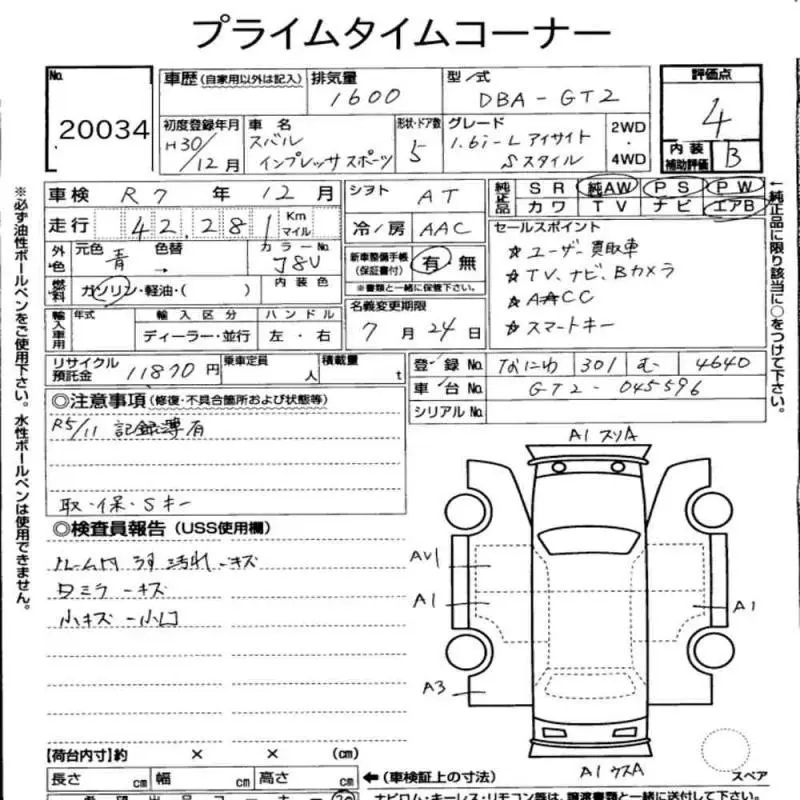 プライムタイムコーナー
No. 20034
車歴 (自家用以外は記入)
排気量 1600
型式 DBA-GT2
評価点 4
初度登録年月 H30/12月
車名 スバル インプレッサスポーツ
形状・ドア数 5
グレード 1.6i-L アイサイト Sスタイル
2WD・4WD
内装補助評価 B
車検 R7年12月
シフト AT
純正品 SR 純AW PS PW
カワ TV ナビ エアB
走行 42,281 Km マイル
冷/房 AAC
セールスポイント
☆ユーザー買取車
☆TV、ナビ、Bカメラ
☆A☆CC
☆スマートキー
外色 元色 青 色替 →
カラーNo. J8U
新車整備手帳(保証書付) 有 無
※書類と一緒に保管下さい。
燃料 ガソリン・軽油・( )
内装色
名義変更期限 7月24日
輸入車用 年式 輸入区分 ハンドル
ディーラー・並行 左・右
リサイクル預託金 11870円
乗車定員 人
積載量 t
登録No. なにわ 301 む 4640
車台No. GT2-045596
シリアルNo.
◎注意事項 (修復・不具合箇所および状態等)
R5/11 記録簿有
取・保・Sキー
◎検査員報告 (USS使用欄)
ルーム内 汚れ キズ
ミラーキズ
小キズ 小凹
A1 スリA
AU1
A1
A1
A3
A1 ウスA
スペア
【荷台内寸】約 × × (cm)
長さ cm 幅 cm 高さ cm
←(車検証上の寸法)
希望出品コーナー
ナビロム・キーレス・リモコン等は、譲渡書類と一緒に送付して下さい。
※必ず油性ボールペンをご使用下さい。水性ボールペンは使用できません。
←純正品に限り該当に○をつけて下さい。